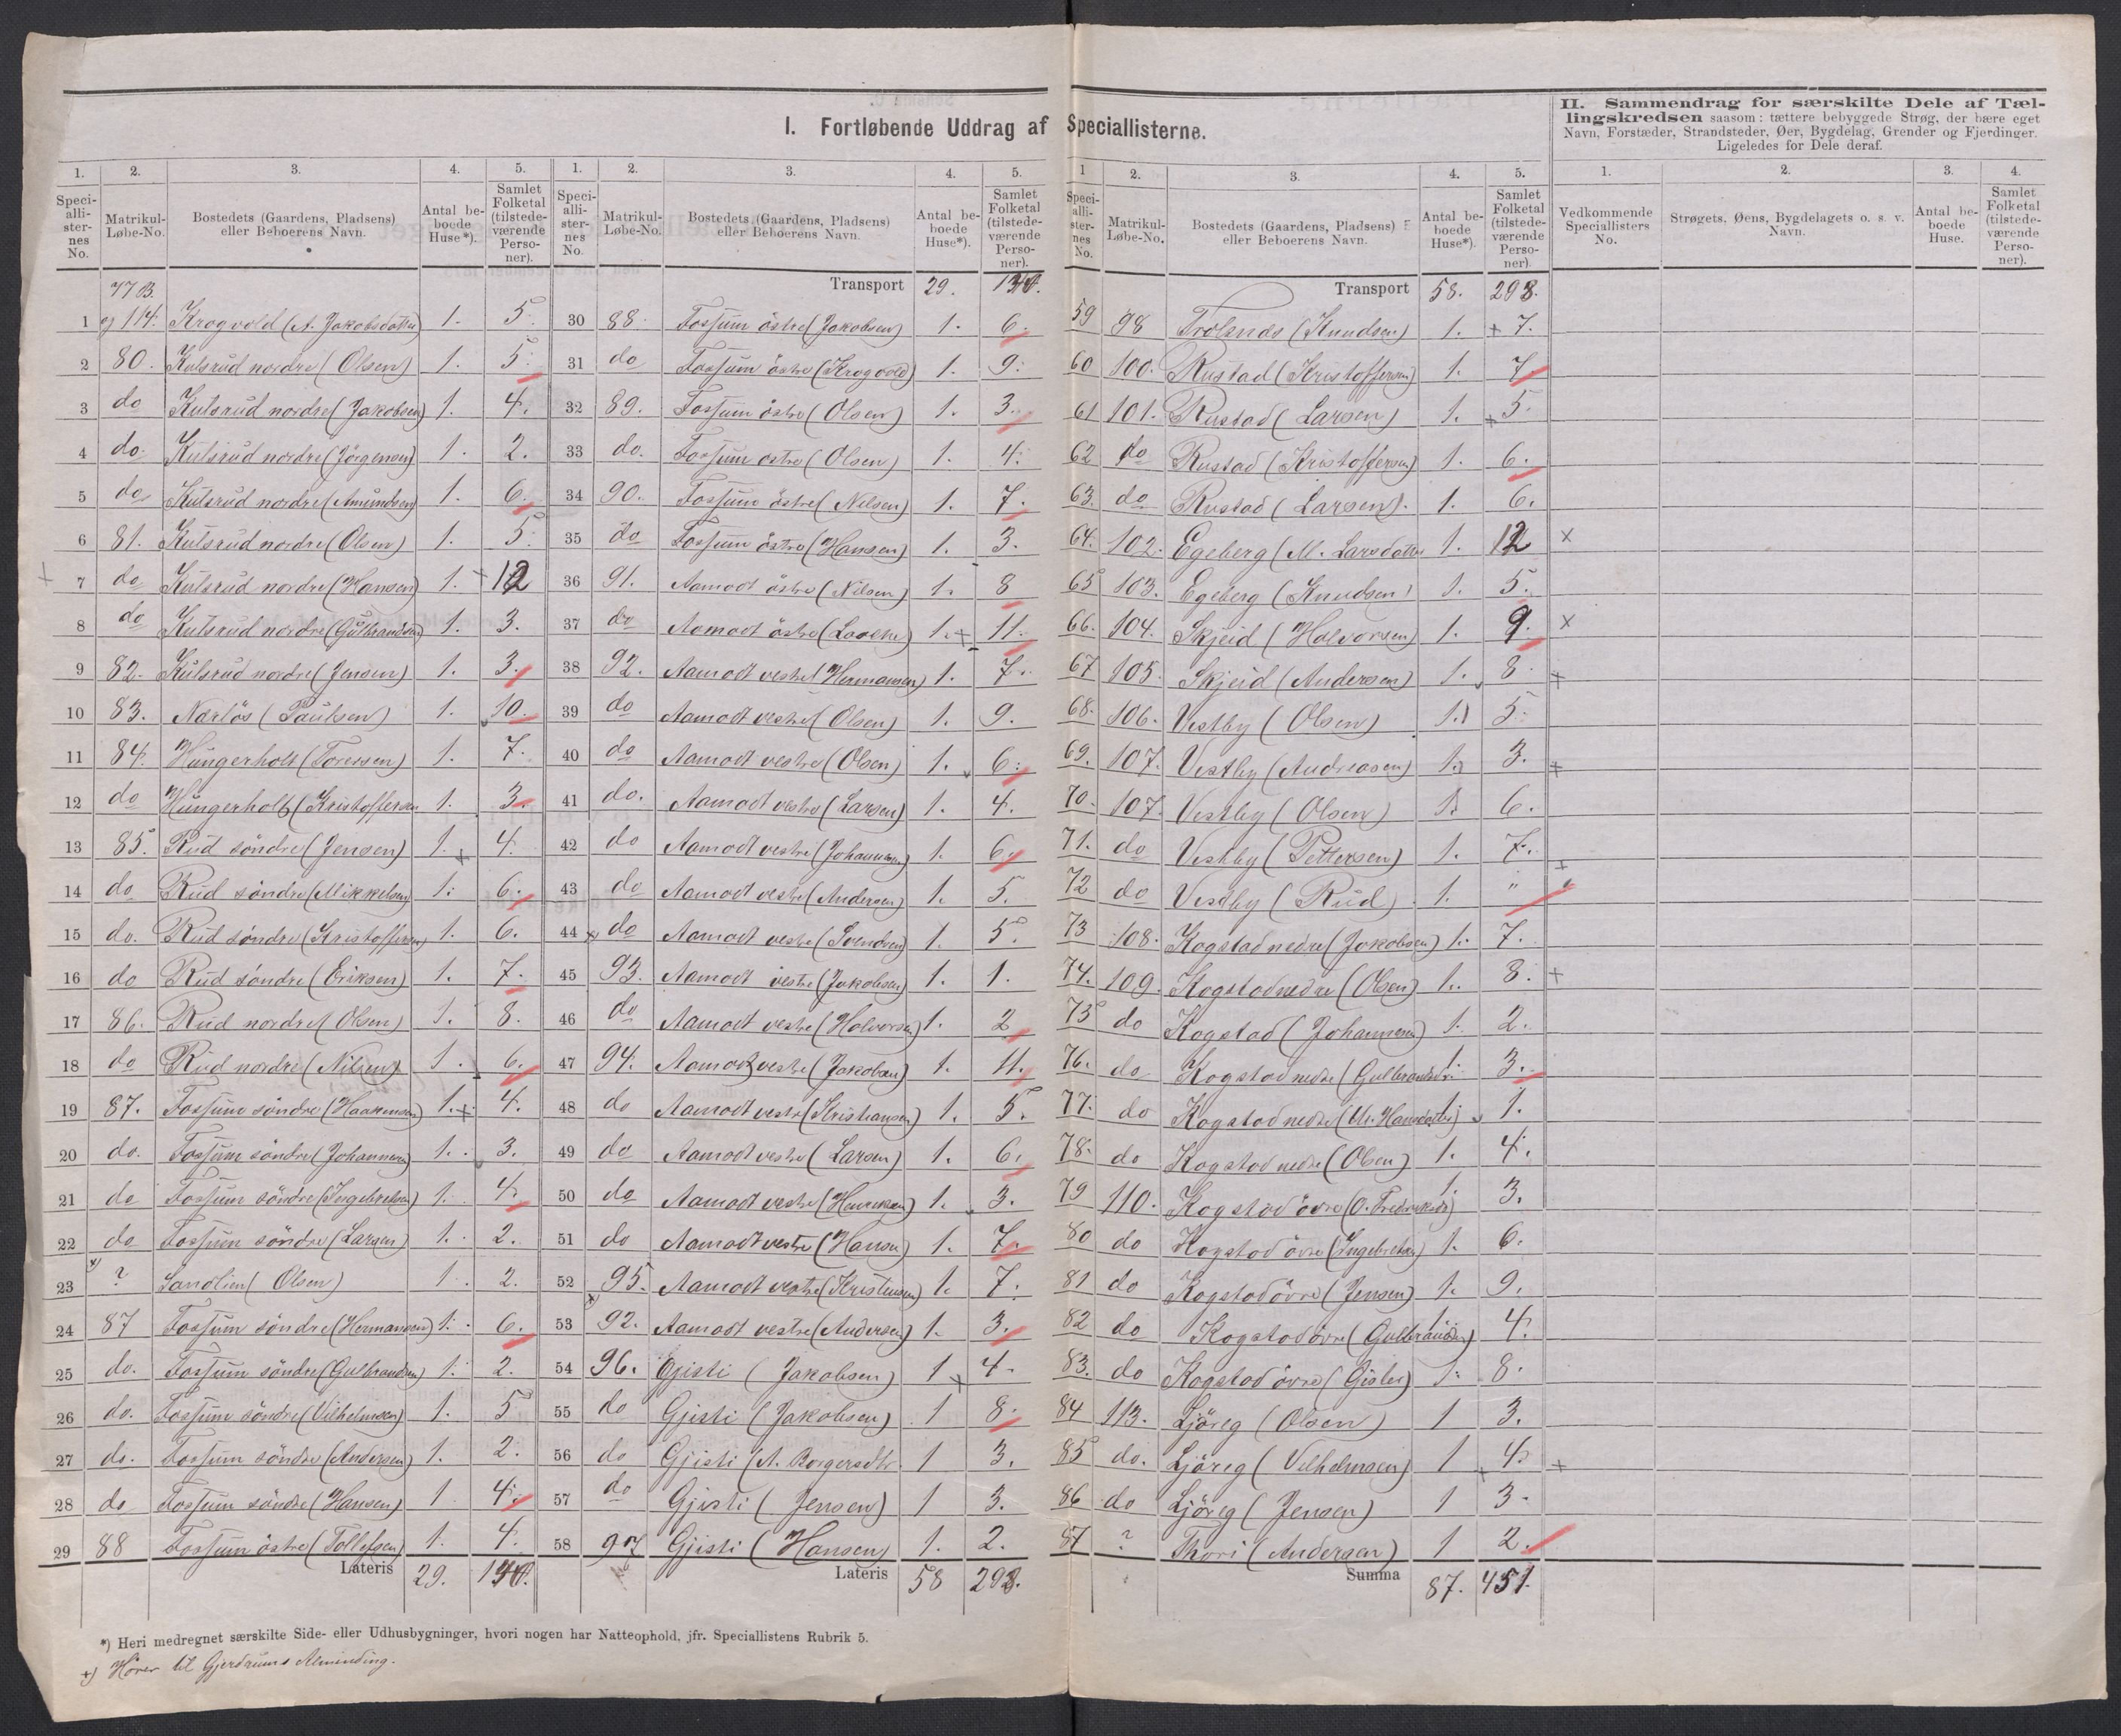 I. Fortløbende Uddrag af Speciallisterne.
II. Sammendrag for særskilte Dele af Tæl-
lingskredsen saasom: tættere bebyggede Strøg, der bære eget
Navn, Forstæder, Strandsteder, Øer, Bygdelag, Grender og Fjerdinger.
Ligeledes for Dele deraf.
1. 2. 3. 4. 5.
Speci-alli-ster-nes No. Matrikul-Løbe-No. Bostedets (Gaardens, Pladsens) eller Beboerens Navn. Antal be-boede Huse*). Samlet Folketal (tilstede-værende Perso-ner).
77 B.
1 og 114. Krogvold (A. Jakobsdatter) 1. 5.
2 80. Kulsrud nordre (Olsen) 1. 5.
3 do Kulsrud nordre (Jakobsen) 1. 4.
4 do. Kulsrud nordre (Jörgensen) 1. 2.
5 do Kulsrud nordre (Amundsen) 1. 6.
6 81. Kulsrud nordre (Olsen) 1. 5.
7 do Kulsrud nordre (Hansen) 1. + 12
8 do Kulsrud nordre (Gulbrandsen) 1. 3.
9 82. Kulsrud nordre (Jensen) 1. 3.
10 83. Narlös (Paulsen) 1. 10.
11 84. Hungerholt (Toressen) 1. 7.
12 do Hungerholt (Kristoffersen 1. 3.
13 85. Rud söndre (Jensen) 1. + 4.
14 do Rud söndre (Mikkelsen) 1. 6.
15 do. Rud söndre (Kristoffersen) 1. 6.
16 do Rud söndre (Eriksen) 1. 7.
17 86. Rud nordre (Olsen) 1. 8.
18 do Rud nordre (Nilsen) 1. 6.
19 87. Fossum söndre (Haakensen) 1. + 4.
20 do. Fossum söndre (Johannesen) 1. 3.
21 do Fossum söndre (Ingebretsen) 1. 4.
22 do Fossum söndre (Larsen) 1. 2.
23 +) ? Sandlien (Olsen) 1. 2.
24 87 Fossum söndre (Hermansen) 1. 6.
25 do. Fossum söndre (Gulbrandsen) 1. 2.
26 do. Fossum söndre (Vilhelmsen) 1. 5
27 do. Fossum söndre (Andersen) 1. 2.
28 do Fossum söndre (Hansen) 1 4.
29 88 Fossum östre (Tollefsen) 1. 4.
Lateris 29. 140.
1. 2. 3. 4. 5.
Speci-alli-ster-nes No. Matrikul-Løbe-No. Bostedets (Gaardens, Pladsens) eller Beboerens Navn. Antal be-boede Huse*). Samlet Folketal (tilstede-værende Perso-ner).
Transport 29. 140.
30 88. Fossum östre (Jakobsen) 1. 6.
31 do Fossum östre (Krogvold) 1. 9.
32 89. Fossum östre (Olsen) 1. 3.
33 do. Fossum östre (Olsen) 1. 4.
34 90. Fossum östre (Nilsen) 1. 7.
35 do Fossum östre (Hansen) 1. 3.
36 91. Aamodt östre (Nilsen) 1. 8
37 do Aamodt östre (Laache) 1. + 11.
38 92. Aamodt vestre (Hermansen) 1. 7.
39 do Aamodt vestre (Olsen) 1. 9.
40 do Aamodt vestre (Olsen) 1. 6.
41 do. Aamodt vestre (Larsen) 1. 4.
42 do Aamodt vestre (Johannesen) 1. 6.
43 do Aamodt vestre (Andersen) 1. 5.
44 do Aamodt vestre (Svendsen) 1. 5.
45 93. Aamodt vestre (Jakobsen) 1. 1.
46 do Aamodt vestre (Halvorsen) 1. 2
47 94. Aamodt vestre (Jakobsen) 1. 11.
48 do Aamodt vestre (Kristiansen) 1. 5.
49 do Aamodt vestre (Larsen) 1. 6.
50 do Aamodt vestre (Henriksen) 1. 3.
51 do Aamodt vestre (Hansen) 1. 7.
52 95. Aamodt vestre (Kristensen) 1. 7.
53 92. Aamodt vestre (Andersen) 1. 3.
54 96. Gjisti (Jakobsen) 1 + 4.
55 do Gjisti (Jakobsen) 1 8.
56 do Gjisti (A. Borgersdtr. 1 3.
57 do Gjisti (Jensen) 1 3.
58 97 Gjisti (Hansen) 1. 2.
Lateris 58 298.
1 2. 3. 4. 5.
Speci-alli-ster-nes No. Matrikul-Løbe-No. Bostedets (Gaardens, Pladsens) eller Beboerens Navn. Antal be-boede Huse*). Samlet Folketal (tilstede-værende Perso-ner).
Transport 58. 298.
59 98 Trolsnes (Knudsen) 1. + 7.
60 100. Rustad (Kristoffersen) 1. 7.
61 101. Rustad (Larsen) 1. + 5.
62 do Rustad (Kristoffersen) 1. 6.
63. do Rustad (Larsen). 1. 6.
64. 102. Egeberg (M. Larsdatter 1. 12 x
65 103. Egeberg (Knudsen) 1. 5.
66. 104. Skjeid (Halvorsen) 1. 9. x
67 105. Skjeid (Andersen) 1. 8. +
68. 106. Vestby (Olsen) 1. 5.
69. 107. Vestby (Andreasen) 1. 3. +
70. 107. Vestby (Olsen) 1. 6.
71. do Vestby (Pettersen) 1. 7. +
72 do Vestby (Rud) 1. "
73 108. Kogstad nedre (Jakobsen) 1. 7.
74. 109. Kogstad nedre (Olsen) 1. 8. +
75 do Kogstad (Johannesen) 1. 2.
76. do Kogstad nedre (Gulbrandsdtr. 1. 3.
77. do Kogstad nedre (M. Hansdatter) 1.
78. do Kogstad nedre (Olsen) 1. 4.
79 110. Kogstad övre (O. Fredriksdt) 1. 3.
80 do Kogstad övre (Ingebretsen) 1. 6.
81 do Kogstad övre (Jensen) 1. 9.
82 do Kogstad övre (Gulbrandsen) 1. 4.
83. do Kogstad övre (Gisler) 1. 8.
84 113. Ljöreg (Olsen) 1 3.
85 do. Ljöreg (Vilhelmsen) 1 + 4. +
86 do Ljöreg (Jensen) 1 3.
87 ? Thori (Andersen) 1 2.
Summa 87. 451.
1. 2. 3. 4.
Vedkommende Speciallisters No. Strøgets, Øens, Bygdelagets o. s. v. Navn. Antal be-boede Huse. Samlet Folketal (tilstede-værende Perso-ner).
*) Heri medregnet særskilte Side- eller Udhusbygninger, hvori nogen har Natteophold, jfr. Speciallistens Rubrik 5.
+) Hörer til Gjerdrums Alminding.